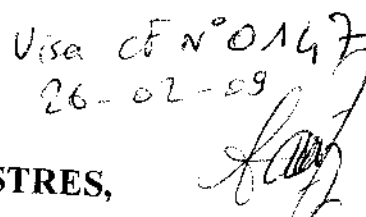 Visa CF N° 0147
26-02-09
STRES,